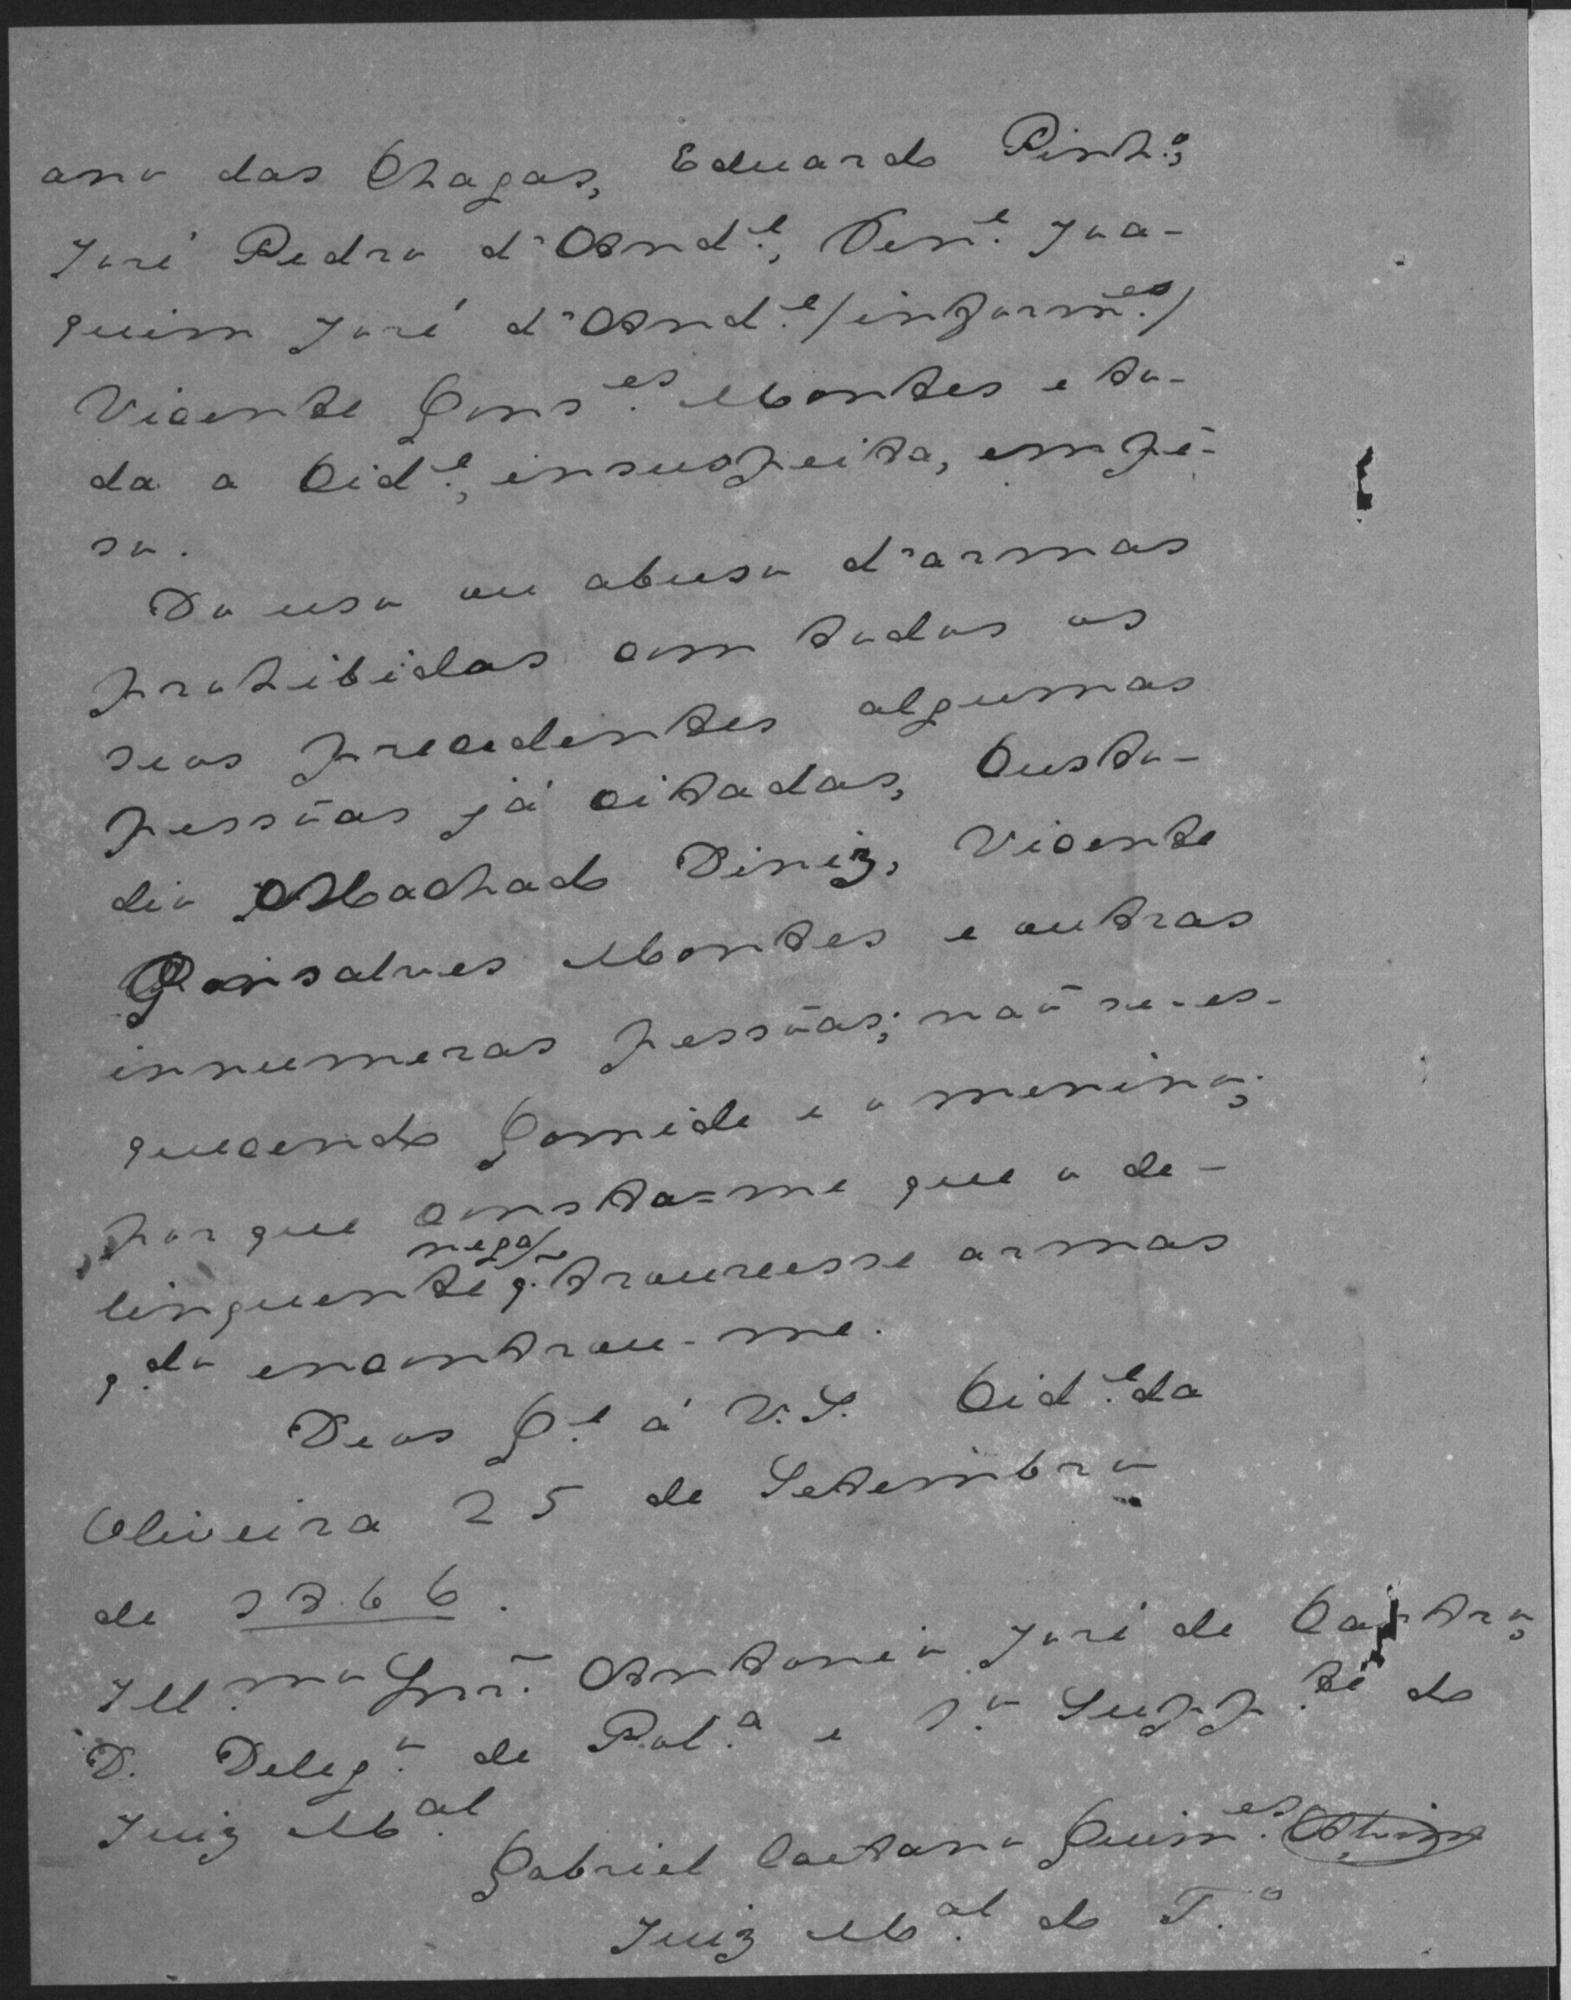 ano das Chagas, Eduardo Pinh.º,
José Pedro d'And.e, Ten.e Joa-
quim José d'And.e /inform.es/
Vicente Gons.es Montes e to-
da a Cid.e, insuspeita, em pê-
so.
Do uso ou abuso d'armas
prohibidas com todos os
seos precedentes algumas
pessôas já citadas, Custo-
dio Machado Diniz, Vicente
Gonsalves Montes e outras
innumeras pessôas; naõ se-es-
quecendo Gomide e o menino;
por que consta=me que o de-
linquente nega q. trouxesse armas
q.do encontrou-me.
Deos G.e á V.S. Cid.e da
Oliveira 25 de Setembro
de 1866.
Ill.mo Snr. Antonio José de Castro,
D. Deleg.º de Pol.a e 1.º Supp.te do
Juiz M.al
Gabriel Caetano Guim.es
Juiz M.al do T.º